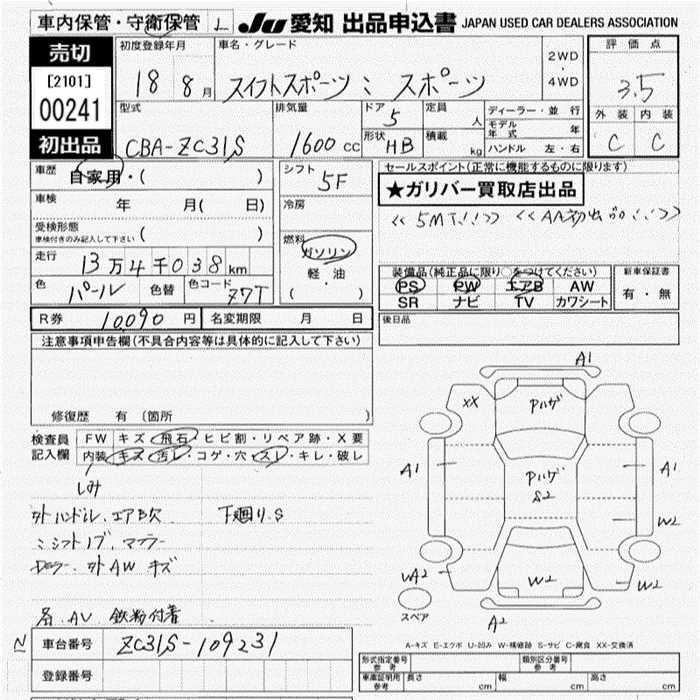 車内保管・守衛保管 L JU 愛知 出品申込書 JAPAN USED CAR DEALERS ASSOCIATION
売切
[2101]
00241
初出品
初度登録年月 車名・グレード 2WD・4WD
18 8月 スイフトスポーツ : スポーツ
評価点
3.5
外装 内装
C C
型式 排気量 ドア 定員 ディーラー・並行
CBA-ZC31S 1600cc 5 人 モデル年式 年
形状 HB 積載 kg ハンドル 左・右
車歴 自家用・( )
シフト 5F
セールスポイント(正常に機能するものに限ります)
★ガリバー買取店出品
<<5MT!!>> <<AA初出品!!>>
車検 年 月( 日)
冷房
受検形態 ( )
車検付きのみ記入して下さい
燃料 ガソリン
軽・油
( )
走行 13万4千038km
色 パール 色替 色コード Z7T
装備品(純正品に限り○をつけてください) 新車保証書
PS PW エアB AW 有・無
SR ナビ TV カワシート
R券 10,090円 名変期限 月 日
後日品
注意事項申告欄(不具合内容等は具体的に記入して下さい)
修復歴 有 (箇所 )
検査員記入欄 FW キズ・飛石・ヒビ割・リペア跡・X要
内装・キズ・汚レ・コゲ・穴・スレ・キレ・破レ
シミ
外ハンドル、エアB欠 下廻り、S
シフトノブ、マフラー
外AW キズ
AV 鉄粉付着
A1
XX
Pハゲ
A1
Pハゲ
S2
A1
W2
WA2
W2
W2
A2
スペア
A-キズ E-エクボ U-凹み W-補修跡 S-サビ C-腐食 XX-交換済
N 車台番号 ZC31S-109231
登録番号
形式指定番号 参考 類別区分番号 参考
車庫証明用 参考 長さ cm 幅 cm 高さ cm